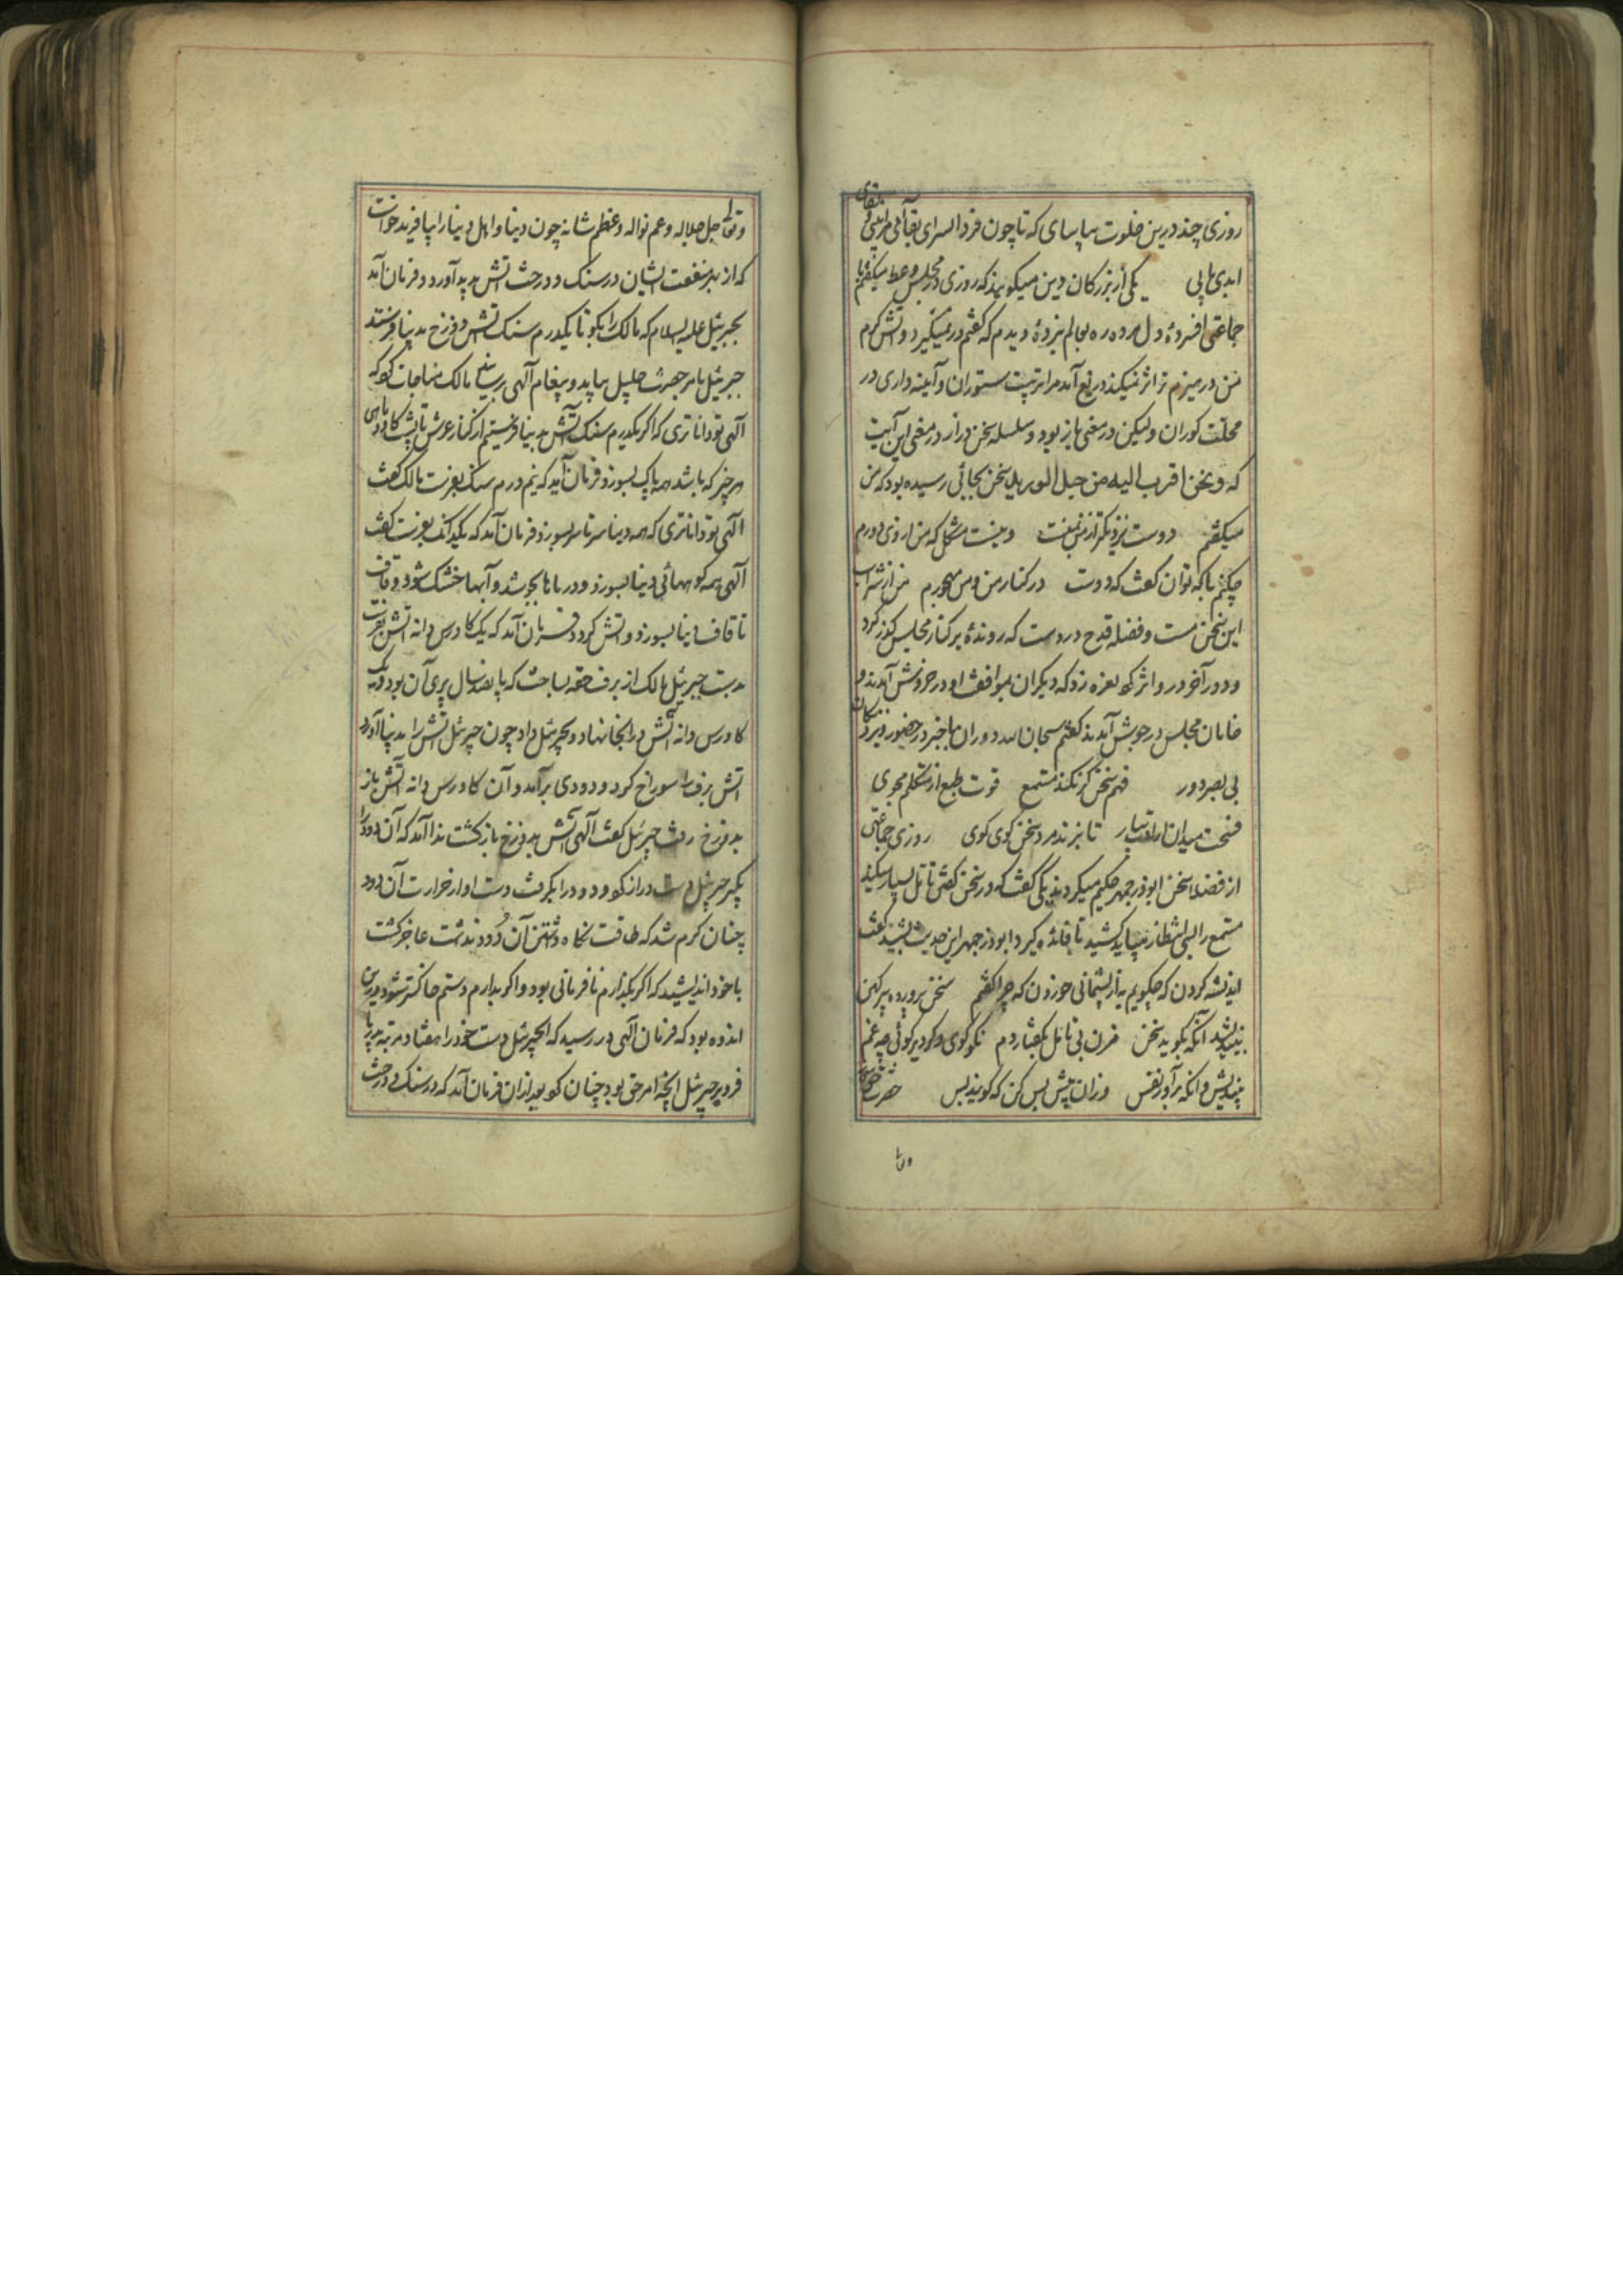 روزی چند درین خلوت بیاسای که تا چون فردا السرای بقا آئی مرا بینی و بلقای
ابدی ما یی یکی از بزرکان دین میکویند که روزی در مجلس وعظ میکفتم با
جماعتی افسردهٔ و دل مرده ره بعالم نبردهٔ دیدم که نفسم در نمیکیرد و آتش کرم
من در هیزم تر اثر نمیکند دریغ آمد مرا تربیت ستوران و آیینه داری در
محلت کوران ولیکن در معنی باز بود و سلسله سخن دراز در معنی این آیت
که و نحن اقرب الیه من حبل الورید سخن بجائی رسیده بود که من
میکفتم دوست نزدیکتر از من بمنست وینست مشکل که من از وی دورم
چکنم با که توان کفت که دوست در کنار من و من مهجورم من از شراب
این سخن مست و فضله قدح در دست که روندهٔ بر کنار مجلس کذر کرد
و دور آخر در و اثر کرد نعره زد که دیکران بموافقت او در خروش آمدند و
خامان مجلس در جوش آمدند کفتم سبحان الله دوران باخبر در حضور و نزدیکان
بی بصر دور فهم سخن کر نکند مستمع قوت طبع از متکلم مجوی
فسحت میدان ارادت بیار تا بزند مرد سخن کوی کوی روزی جماعتی
از فضیلت سخن ابوذرجمهر حکیم میکردند یکی کفت که در سخن کفتن تامل بسیار میکند
مستمع را بسی انتظار میباید کشید تا فائده کیرد ابوذرجمهر این حدیث بشنید کفت
اندیشه کردن که چکویم به از پشیمانی خوردن که چرا کفتم سخن پرورده پیر کهن
بیندیشد آنکه بکوید سخن مزن بی تامل بکفتار دم نکو کوی و کر دیر کوئی چه غم
بیندیش و آنکه برآور نفس وزان پیش بس کن که کویند بس حضرت حق سبحانه
وتعا
وتعالی جل جلاله و عم نواله و عظم شانه چون دنیا و اهل دنیا را بیافرید خواست
که از بهر منفعت ایشان در سنک و درخت آتش پدید آورد و فرمان آمد
بجبرئیل علیه السلام که مالک را بکو تا یکدرم سنک آتش دوزخ بدنیا فرستد
جبرئیل بامر حضرت جلیل بیاید و پیغام آلهی برساند مالک مناجات کرد که
آلهی تو داناتری که اکر یکدرم سنک آتش بدنیا فرستیم از کنار عرش تا پشت کاو و ماهی
هر چیز که باشد همه پاک بسوزد فرمان آید که نیم درم سنک بفرست مالک کفت
الهی تو داناتری که همه دنیا سرتاسر بسوزد فرمان آمد که یکدانک بفرست کفت
آلهی همه کوههائی دنیا بسوزد و دریاها بجوشد و آبها خشک شود و قاف
تا قاف دنیا بسوزد و آتش کیرد فرمان آمد که یک کاورس دانه آتش بفرست
بدست جبرئیل مالک از برف حقه بساخت که پانصد سال پری آن بود و یک
کاورس دانه آتش در آنجا نهاد و بجبرئیل داد چون جبرئیل آتش را بدنیا آورد
آتش برف را سوراخ کرد و دودی برآمد و آن کاورس دانه آتش باز
بدوزخ رفت جبرئیل کفت آلهی آتش بدوزخ باز کشت ندا آمد که آن دود را
بکیر جبرئیل دست دراز کرد و دود را بکرفت دست او از حرارت آن دود
چنان کرم شد که طاقت نکاه داشتن آن دُود نداشت عاجز کشت
با خود اندیشید که اکر بکذارم نافرمانی بود و اکر بدارم دستم خاکستر شود درین
اندوه بود که فرمان آلهی در رسید که ای جبرئیل دست خود را هفتاد مرتبه بدریا
فرو بر جبرئیل آنچه امر حق بود چنان کرد بعد ازان فرمان آمد که در سنک و درخت